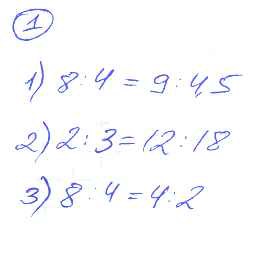 1
1) 8 : 4 = 9 : 4,5
2) 2 : 3 = 12 : 18
3) 8 : 4 = 4 : 2